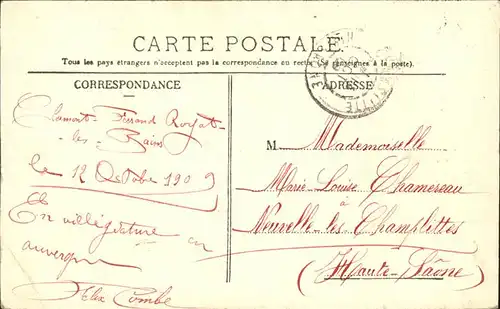 CARTE POSTALE
Tous les pays étrangers n'acceptent pas la correspondance au recto (Se renseignez à la poste).
CORRESPONDANCE
ADRESSE
Clamont-Ferrand Royat-
les-Bains
le 12 Octobre 1909
En villégiature en
auvergne
Felix Combe
M. Mademoiselle
Marie-Louise Chamereau
Neuvelle-les-Champlittes
(Haute-Saône)